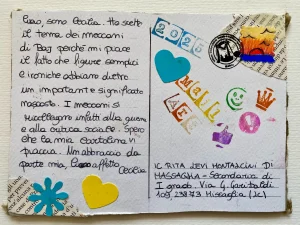 Ciao, sono Cecilia. Ho scelto
il tema dei meccani
di Baj perché mi piace
il fatto che figure semplici
e ironiche abbiano dietro
un importante e significato
nascosto. I meccani si
ricollegano infatti alla guerra
e alla critica sociale. Spero
che la mia cartolina vi
piaccia. Un abbraccio da
parte mia, affetto
Cecilia
2025
Mail
Art
IC RITA LEVI MONTALCINI DI
MISSAGLIA - Secondaria di
I grado. Via G. Garibaldi
109, 23873 Missaglia (LC)